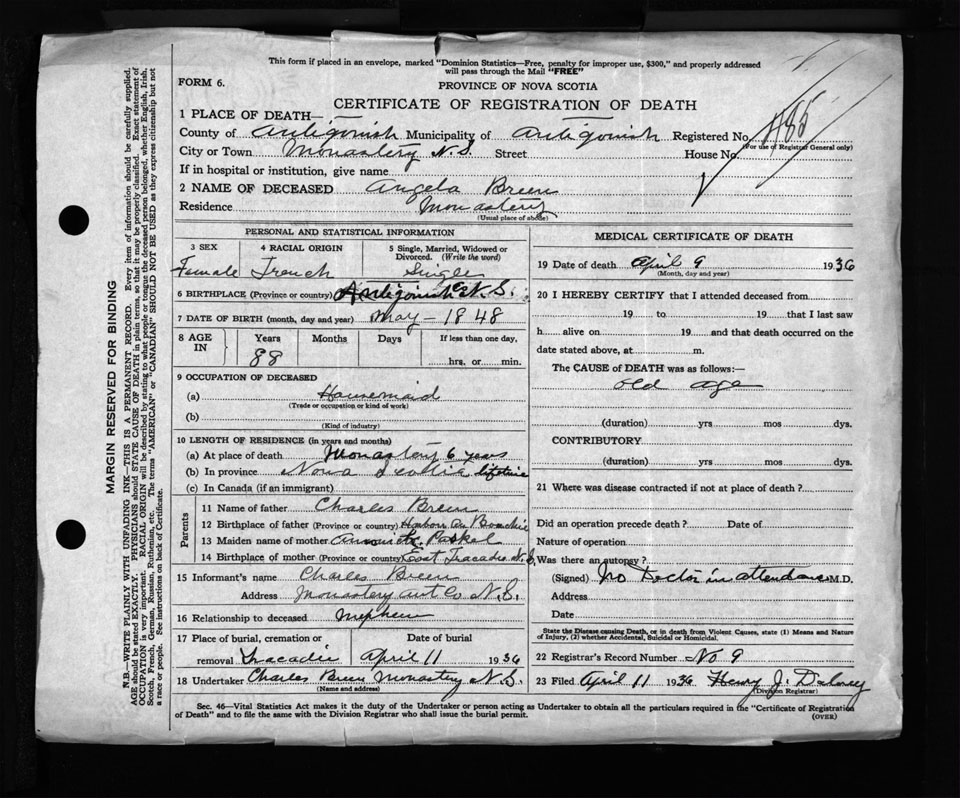 This form if placed in an envelope, marked "Dominion Statistics—Free, penalty for improper use, $300," and properly addressed
will pass through the Mail "FREE"
FORM 6.
PROVINCE OF NOVA SCOTIA
CERTIFICATE OF REGISTRATION OF DEATH
1 PLACE OF DEATH—
County of Antigonish Municipality of Antigonish Registered No. 485
(For use of Registrar General only)
City or Town Monastery N.S. Street House No.
If in hospital or institution, give name
2 NAME OF DECEASED Angela Breen
Residence Monastery
(Usual place of abode)
PERSONAL AND STATISTICAL INFORMATION
3 SEX 4 RACIAL ORIGIN 5 Single, Married, Widowed or Divorced. (Write the word)
Female French Single
6 BIRTHPLACE (Province or country) Antigonish Co N.S.
7 DATE OF BIRTH (month, day and year) May - 1848
8 AGE IN Years Months Days If less than one day,
88 hrs. or min.
9 OCCUPATION OF DECEASED
(a) Housemaid
(Trade or occupation or kind of work)
(b)
(Kind of industry)
10 LENGTH OF RESIDENCE (in years and months)
(a) At place of death Monastery 6 years
(b) In province Nova Scotia lifetime
(c) In Canada (if an immigrant)
Parents
11 Name of father Charles Breen
12 Birthplace of father (Province or country) Harbour Au Bouchie
13 Maiden name of mother
14 Birthplace of mother (Province or country) East Tracadie N.S.
15 Informant's name Charles Breen
Address Monastery Ant Co N.S.
16 Relationship to deceased Nephew
17 Place of burial, cremation or Date of burial
removal Tracadie April 11 1936
18 Undertaker Charles Breen Monastery N.S.
(Name and address)
MEDICAL CERTIFICATE OF DEATH
19 Date of death April 9 1936
(Month, day and year)
20 I HEREBY CERTIFY that I attended deceased from
19 to 19 that I last saw
h alive on 19 and that death occurred on the
date stated above, at m.
The CAUSE of DEATH was as follows:—
old age
(duration) yrs mos dys.
CONTRIBUTORY
(duration) yrs mos dys.
21 Where was disease contracted if not at place of death?
Did an operation precede death? Date of
Nature of operation
Was there an autopsy?
(Signed) No Doctor in attendance M.D.
Address
Date
State the Disease causing Death, or in death from Violent Causes, state (1) Means and Nature
of Injury, (2) whether Accidental, Suicidal or Homicidal.
22 Registrar's Record Number No 9
23 Filed April 11 1936 Henry J. Delorey
(Division Registrar)
Sec. 46—Vital Statistics Act makes it the duty of the Undertaker or person acting as Undertaker to obtain all the particulars required in the "Certificate of Registration
of Death" and to file the same with the Division Registrar who shall issue the burial permit.
(OVER)
MARGIN RESERVED FOR BINDING
N.B.—WRITE PLAINLY WITH UNFADING INK—THIS IS A PERMANENT RECORD. Every item of information should be carefully supplied.
AGE should be stated EXACTLY. PHYSICIANS should STATE CAUSE OF DEATH in plain terms, so that it may be properly classified. Exact statement of
OCCUPATION is very important. RACIAL ORIGIN will be described by stating to what people or tongue the deceased person belonged, whether English, Irish,
Scotch, French, German, Russian, Ruthenian, etc. The terms "AMERICAN" or "CANADIAN" SHOULD NOT BE USED as they express citizenship but not
a race or people. See instructions on back of Certificate.